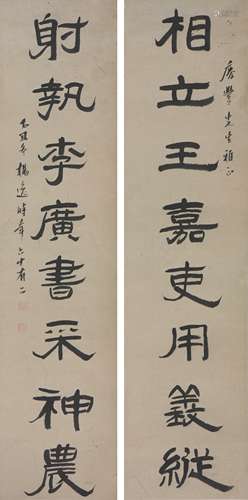 相立王嘉吏用義縱
先生雅正
射執李廣書采神農
楊逸時年六十有二